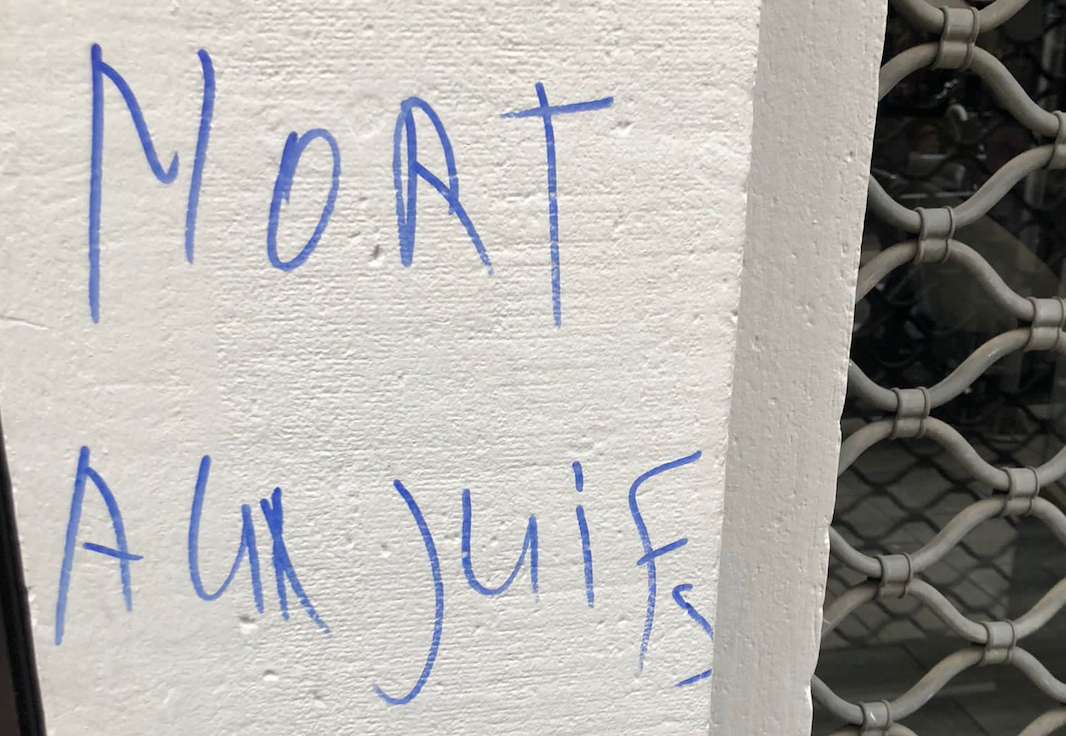 MORT
AUX JUiFs